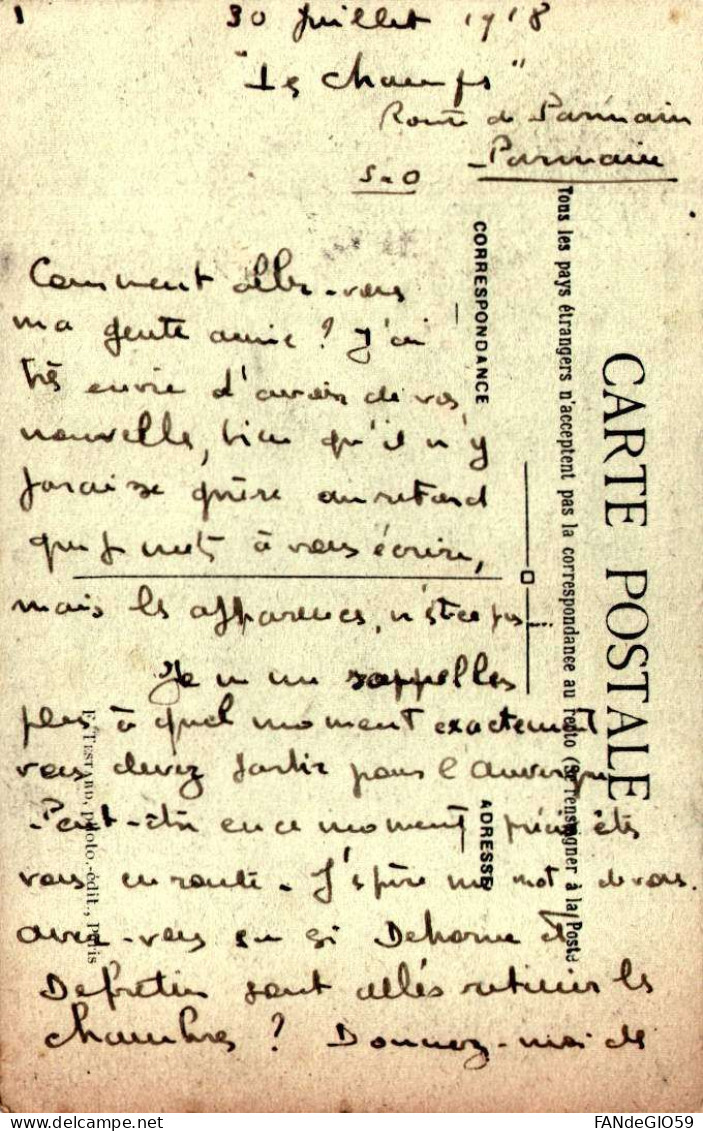 1
30 Juillet 1918
"Les Champs"
Route de Parmain
Parmain
S-O
Comment allez-vous
ma gente amie ? J'ai
très envie d'avoir de vos
nouvelles, bien qu'il n'y
paraisse guère au retard
que je mets à vous écrire,
mais les apparences, n'est ce pas !
Je ne me rappelles
plus à quel moment exactement
vous devez partir pour l'Auvergne
Peut-être en ce moment êtes
vous en route. J'espère un mot de vous.
avez-vous su si Dehorne et
Defretin sont allés retenir les
chambres ? Donnez-moi des
CARTE POSTALE
Tous les pays étrangers n'acceptent pas la correspondance au recto (Se renseigner à la Poste
CORRESPONDANCE
ADRESSE
E. TESTARD, photo.-édit., Paris
delcampe.net
FANdeGIO59